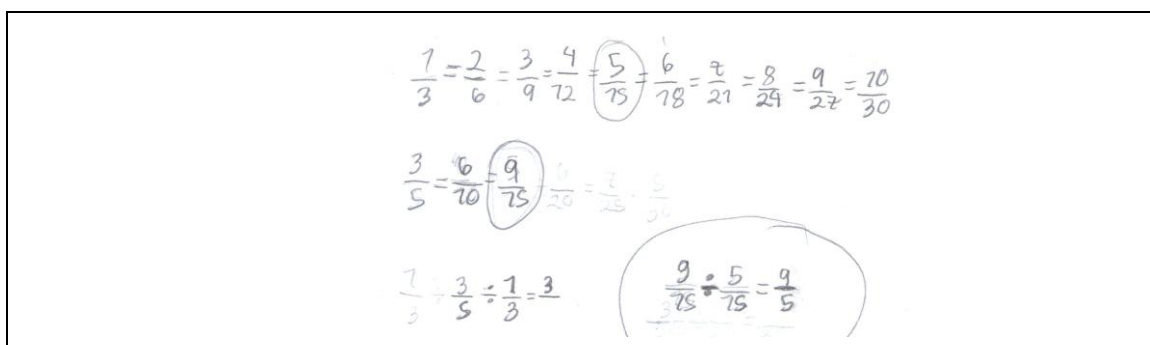 1/3 = 2/6 = 3/9 = 4/12 = 5/15 = 6/18 = 7/21 = 8/24 = 9/27 = 10/30
3/5 = 6/10 = 9/15 6/20 = 7/25
3/5 ÷ 1/3 = 3
9/15 ÷ 5/15 = 9/5